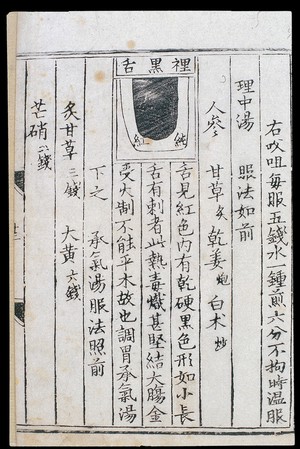 右㕮咀每服五錢水一鍾煎六分不拘時溫服
理中湯　照法如前
人參　甘草炙　乾姜炮　白术炒
裡黑舌
純紅
舌見紅色內有乾硬黑色形如小長
舌有刺者此熱毒熾甚堅結大腸金
受火制不能平木故也調胃承氣湯
下之　承氣湯服法照前
炙甘草三錢　大黃六錢
芒硝六錢